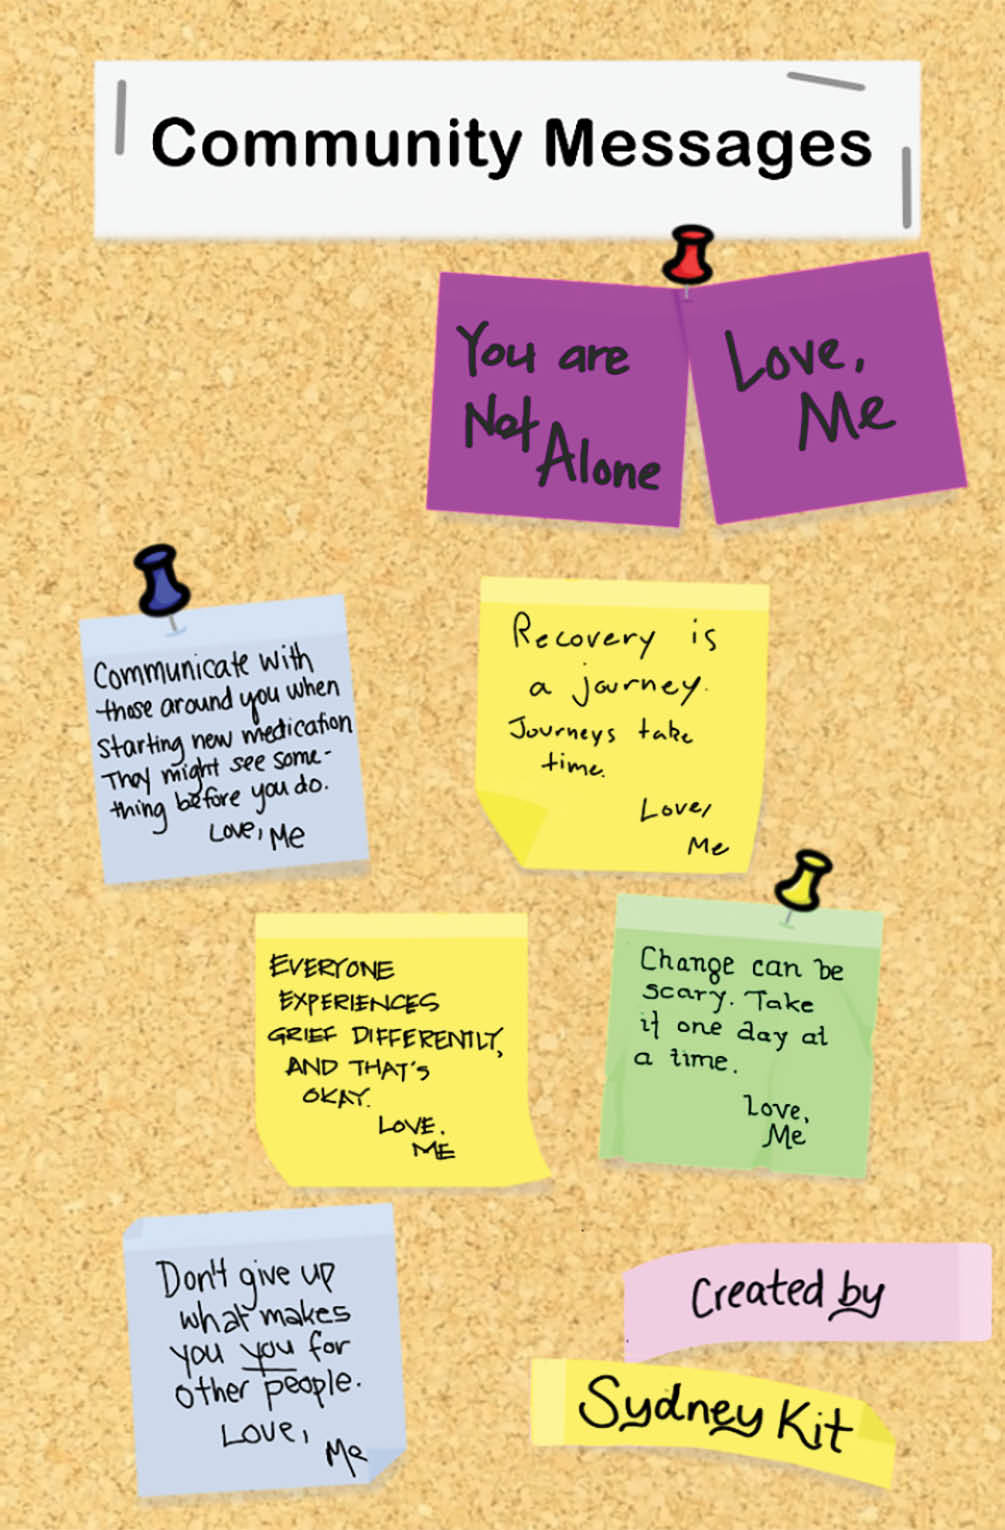 Community Messages
You are
Not
Alone
Love,
Me
Communicate with
those around you when
starting new medication
They might see some-
thing before you do.
Love, Me
Recovery is
a journey.
Journeys take
time.
Love,
Me
EVERYONE
EXPERIENCES
GRIEF DIFFERENTLY,
AND THAT'S
OKAY.
LOVE.
ME
Change can be
scary. Take
it one day at
a time.
Love,
Me
Don't give up
what makes
you you for
other people.
Love,
Me
Created by
Sydney Kit